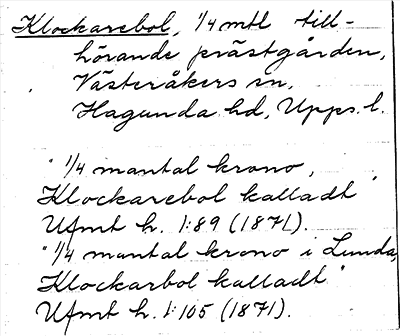 Klockarebol, 1/4 mtl till-
hörande prästgården,
Västeråkers sn,
Hagunda hd, Upps. l.
"1/4 mantal krono,
Klockarebol kalladt"
Ufmt h. 1:89 (1871).
"1/4 mantal krono i Lunda,
Klockarbol kalladt"
Ufmt h. 1:105 (1871).